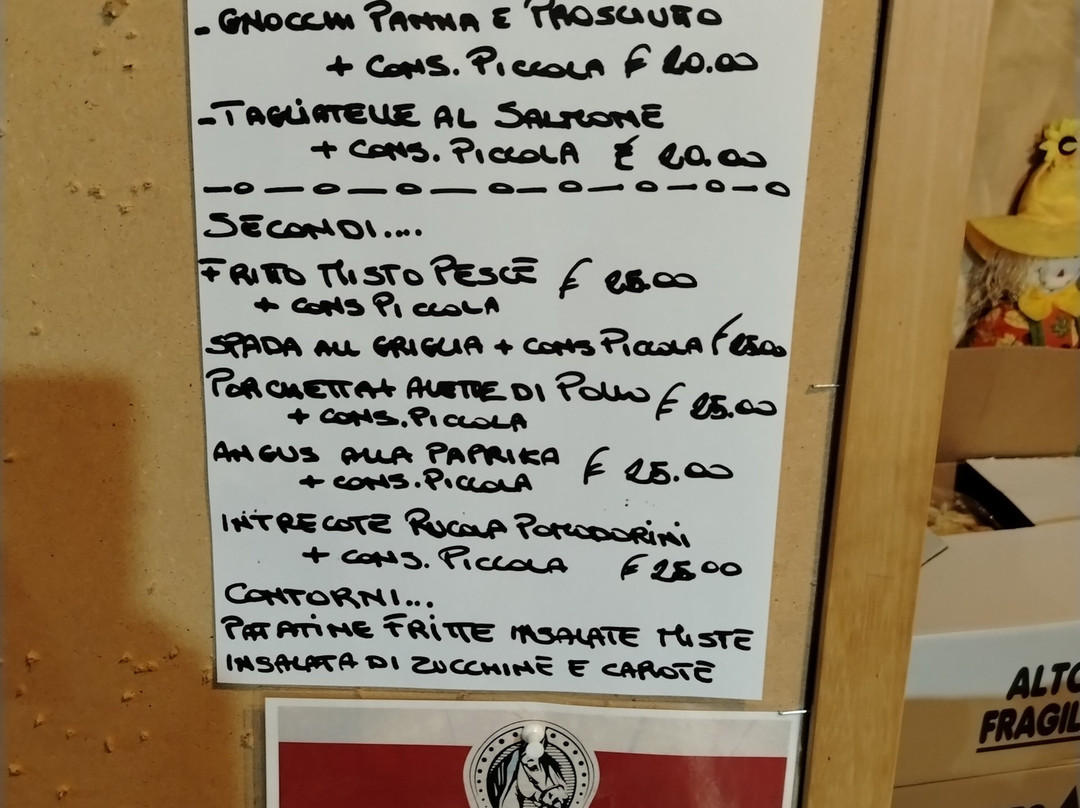 - GNOCCHI PANNA E PROSCIUTTO
+ CONS. PICCOLA € 20.00
- TAGLIATELLE AL SALMONE
+ CONS. PICCOLA € 20.00
SECONDI....
FRITTO MISTO PESCE € 25.00
+ CONS PICCOLA
SPADA ALL GRIGLIA + CONS PICCOLA € 25.00
PORCHETTA + ALETTE DI POLLO € 25.00
+ CONS. PICCOLA
ANGUS ALLA PAPRIKA € 25.00
+ CONS. PICCOLA
INTRECOTE RUCOLA POMODORINI
+ CONS. PICCOLA € 25.00
CONTORNI...
PATATINE FRITTE INSALATE MISTE
INSALATA DI ZUCCHINE E CAROTE
ALTO
FRAGIL